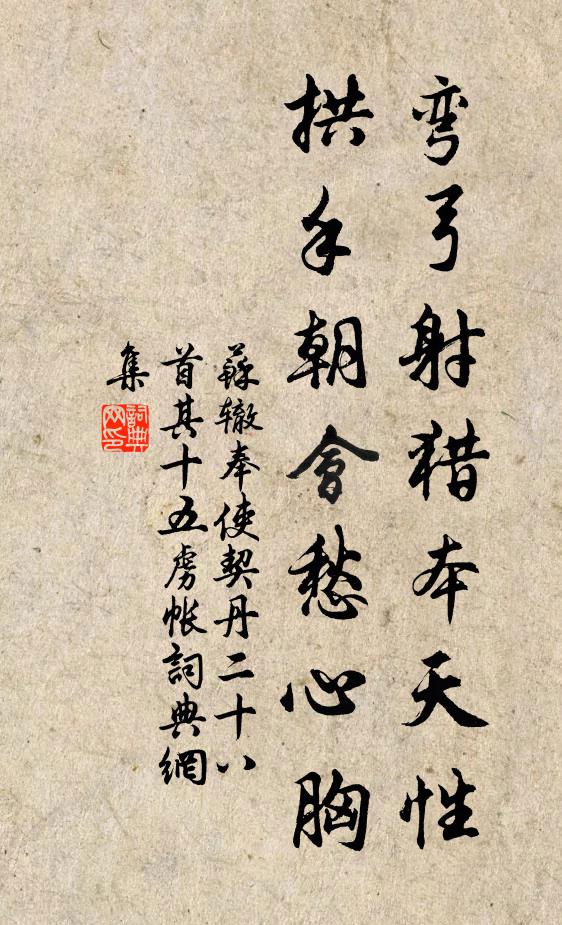 弯弓射猎本天性
拱手朝會愁心胸
蘇辙奉使契丹二十八
首其十五虏帐詞典網
集
詞典网印